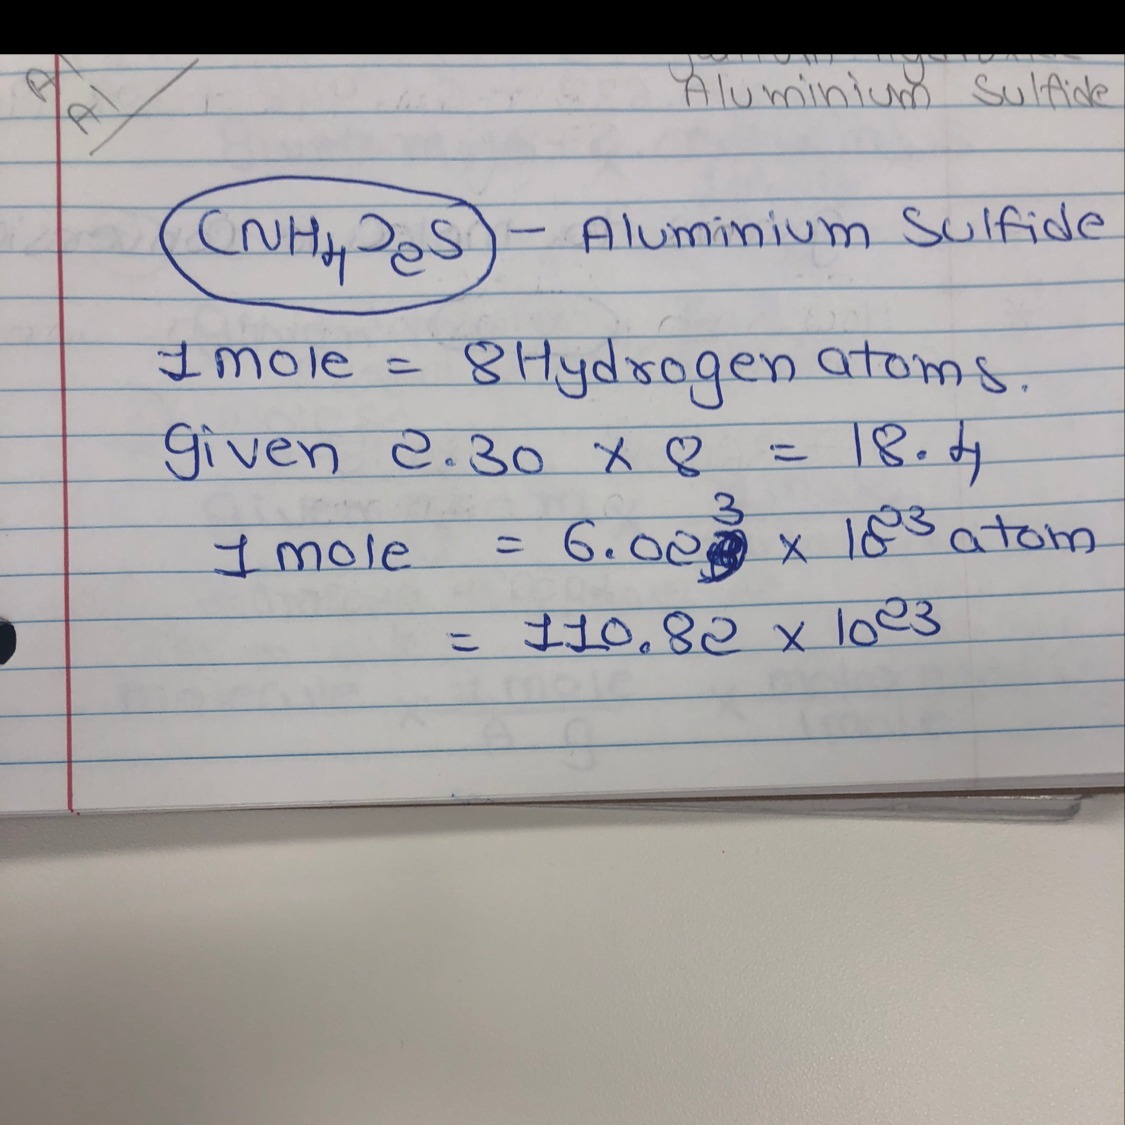 Aluminium Sulfide
(NH4)2S - Aluminium Sulfide
1 mole = 8 Hydrogen atoms.
Given 2.30 × 8 = 18.4
1 mole = 6.023 × 10^23 atom
= 110.82 × 10^23